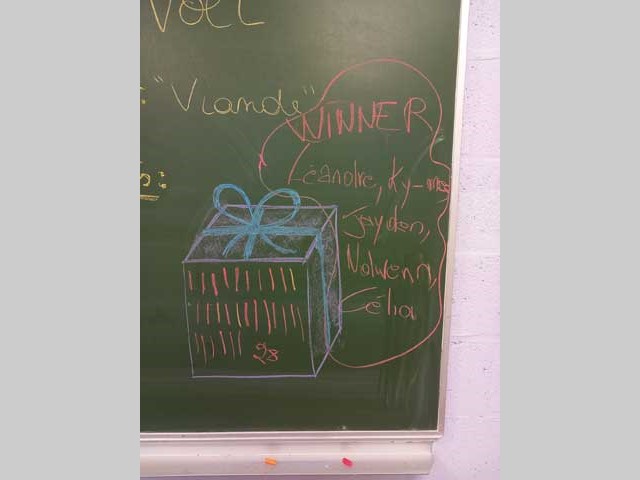 VOEL
: "Viande"
WINNER
Léandre, Ky-mas
s:
Jayden,
Nolwenn,
Célia
28